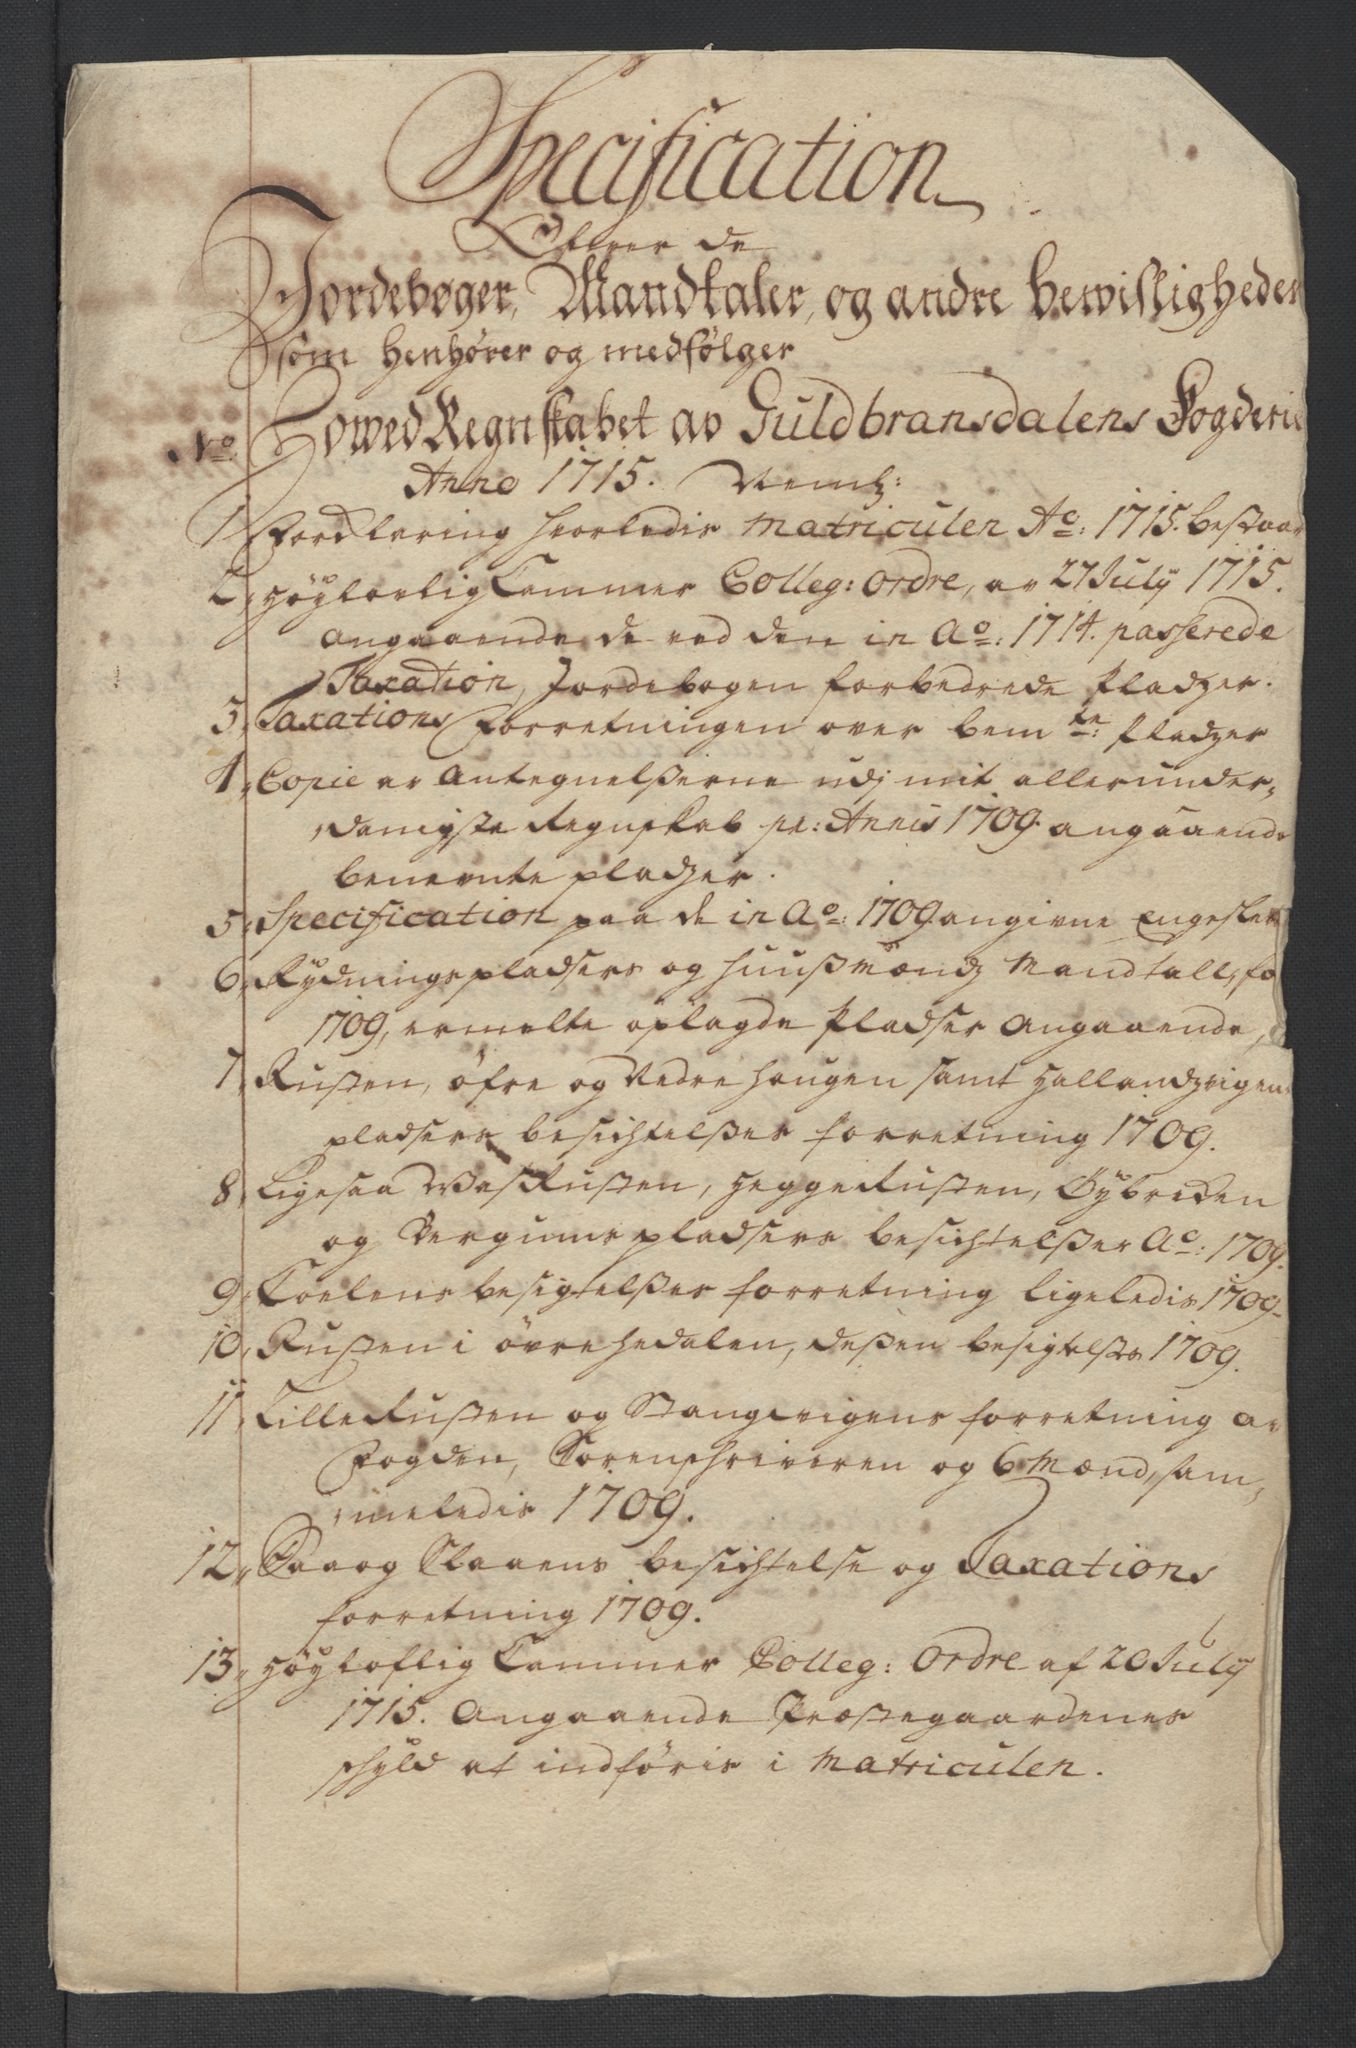 Specification
Efter de
Jordebøger, Mandtaler, og andre bewisligheder
som henhører og medfølger
No. Howed Regnskabet av Guldbransdalens Fogderie
Anno 1715. Nembl:
1, Forklaring hvorledis Matriculen Ao: 1715. bestaar
2, Høylovlig Cammer Colleg: Ordre, av 27 July 1715.
angaaende de ved den in Ao: 1714. passerede
Taxation, Jordebogen forbedrede Pladzer.
3, Taxations Forretningen over bemte: Pladzer
4, Copie av Antegnelßerne udj mit allerunder,
danigste Regnskab pr: Annis 1709. angaaende
benevnte pladzer.
5, Specification paa de in Ao: 1709 angivne Engesletter
6, Rydningspladsers og Huußmændz Mandtall, for
1709, ermelte oplagde Pladser Angaaende,
7, Rusten, öfre og Nedre Haugen samt Hallandzvigens
pladsers besichtelßes forretning 1709.
8, Ligesaa Rusten, Heggerusten,
og pladsers besichtelßer Ao: 1709.
9, besigtelßes forretning ligeledis 1709.
10, Rusten i övre Hedalen, deßen besigtelße 1709.
11, Lille Rusten og Stangvigens forretning av
Fogden, Sorenschriveren og 6 Mænd, sam,
meledis 1709.
12, besichtelse og Taxations
forretning 1709.
13, Høyloflig Cammer Colleg: Ordre af 20 July
1715. Angaaende Præstegaardenes
schyld at indföris i Matriculen.